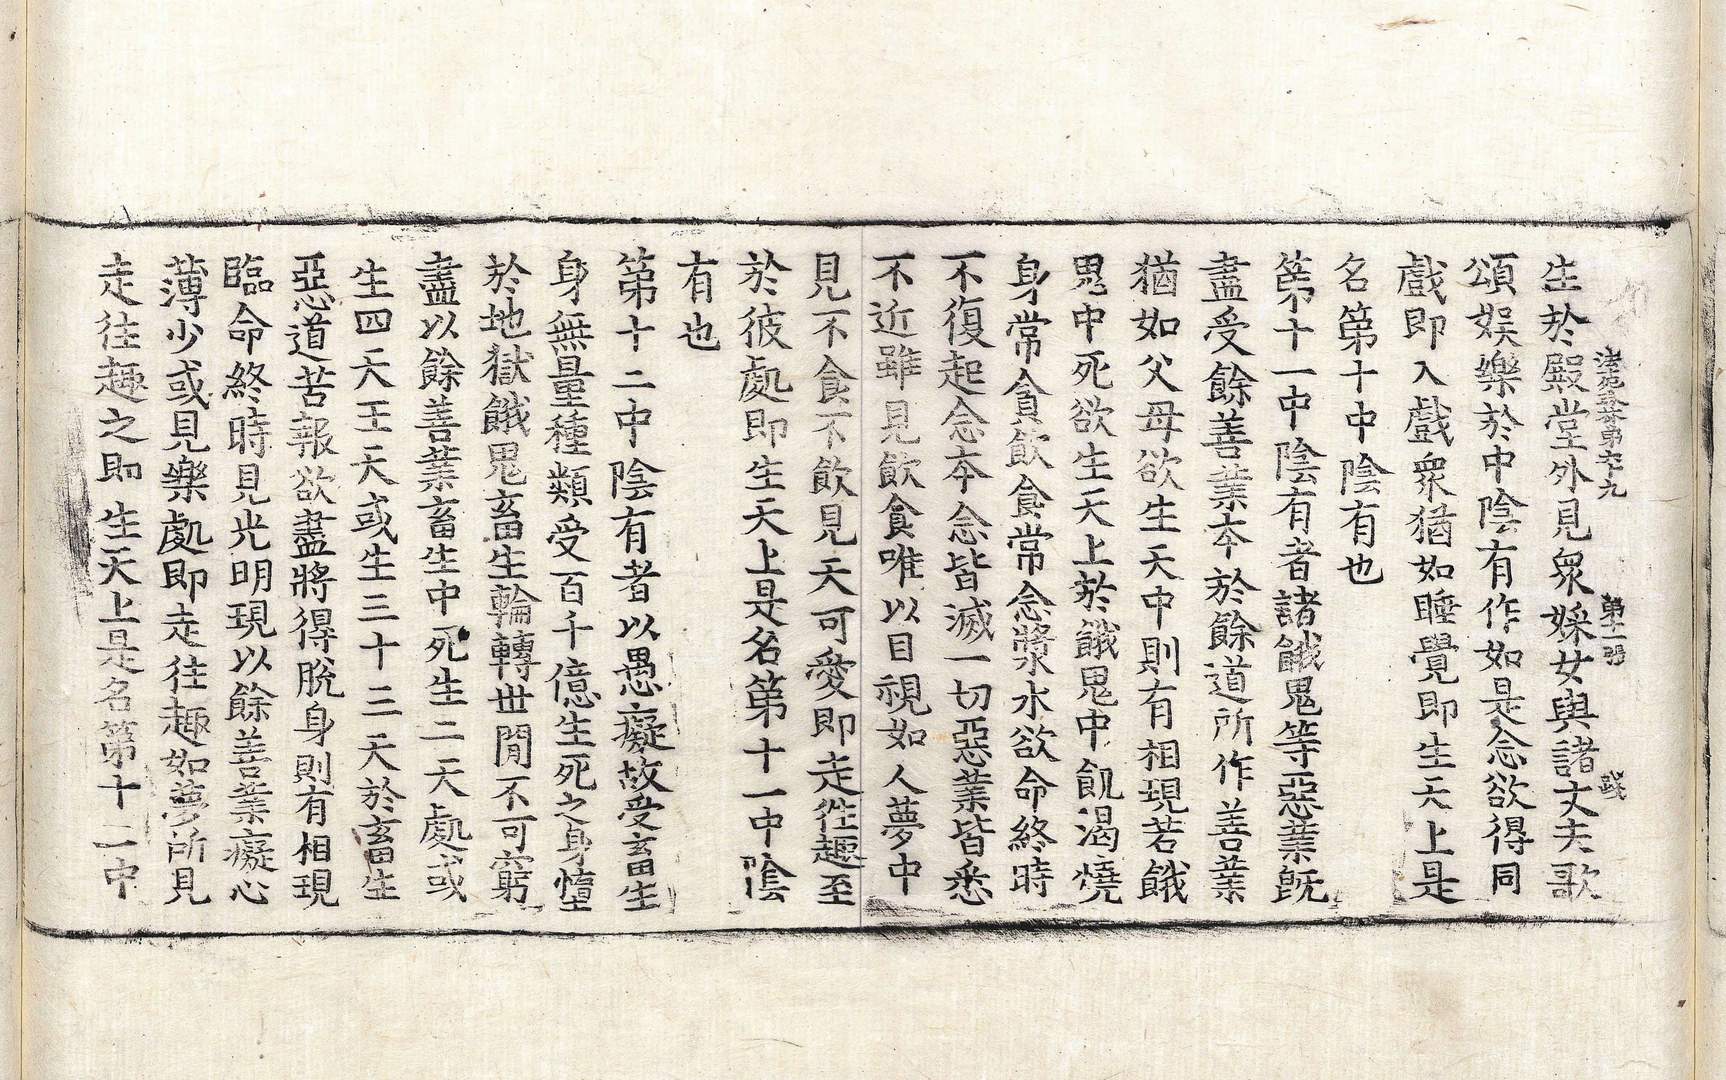 法苑珠林第六十九　第十一張
生於殿堂外見衆婇女與諸丈夫歌
頌娛樂於中陰有作如是念欲得同
戲即入戲衆猶如睡覺即生天上是
名第十中陰有也
第十一中陰有者諸餓鬼等惡業旣
盡受餘善業本於餘道所作善業
猶如父母欲生天中則有相現若餓
鬼中死欲生天上於餓鬼中飢渴燒
身常貪飲食常念漿水欲命終時
不復起念本念皆滅一切惡業皆悉
不近雖見飲食唯以目視如人夢中
見不食不飲見天可愛即走徃趣至
於彼處即生天上是名第十一中陰
有也
第十二中陰有者以愚癡故受畜生
身無量種類受百千億生死之身墮
於地獄餓鬼畜生輪轉世間不可窮
盡以餘善業畜生中死生二天處或
生四天王天或生三十三天於畜生
惡道苦報欲盡將得脫身則有相現
臨命終時見光明現以餘善業癡心
薄少或見樂處即走往趣如夢所見
走往趣之即生天上是名第十二中